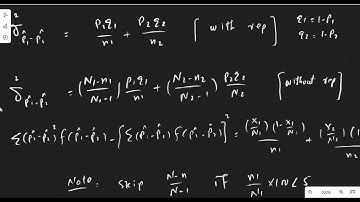 σ²p̂₁-p̂₂ = P₁q₁/n₁ + P₂q₂/n₂ [with rep] q₁ = 1-P₁
q₂ = 1-P₂
σ²p̂₁-p̂₂ = (N₁-n₁/N₁-1) P₁q₁/n₁ + (N₂-n₂/N₂-1) P₂q₂/N₂ [without rep]
Σ(p̂₁-p̂₂)² f(p̂₁-p̂₂) - [Σ(p̂₁-p̂₂) f(p̂₁-p̂₂)]² = (X₁/N₁)(1-X₁/N₁)/n₁ + (X₂/N₂)(1
Note: skip N-n/N-1 if n₁/N₁ X100 < 5
100%